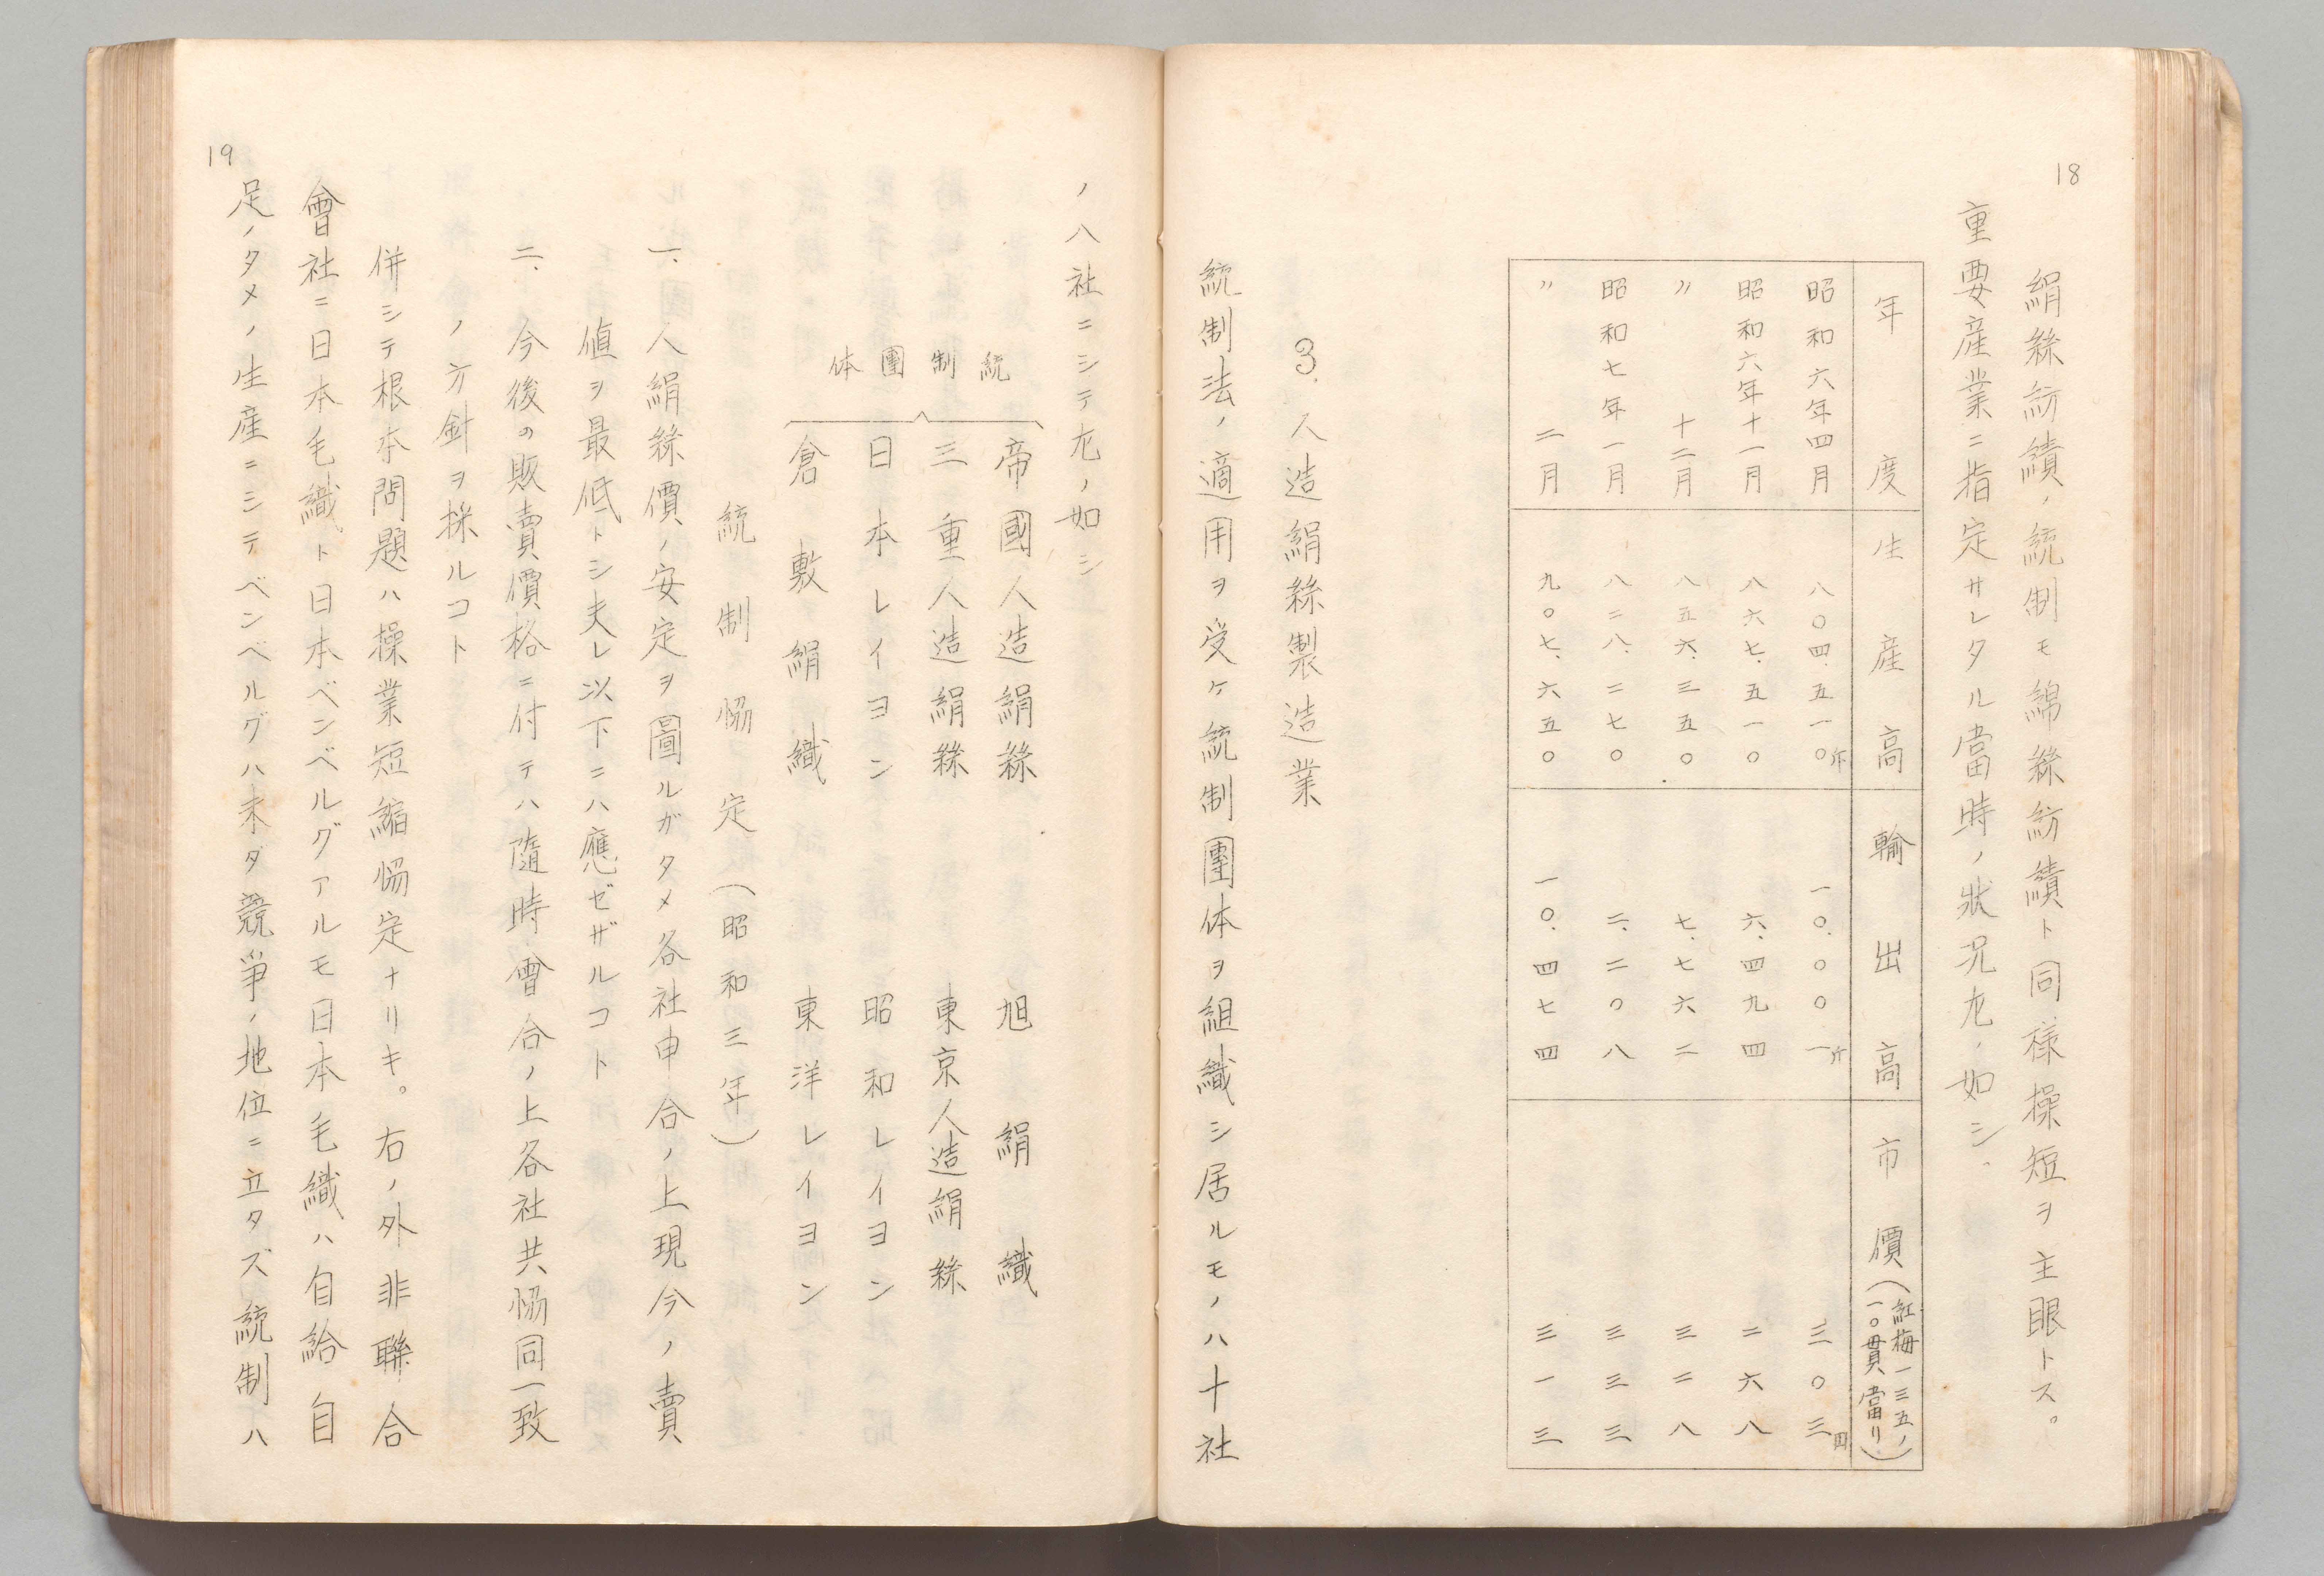 18
絹絲紡績ノ統制モ綿絲紡績ト同樣操短ヲ主眼トス。
重要産業ニ指定サレタル當時ノ狀況左ノ如シ、
年度 生産高 輸出高 市價(紅梅一三五ノ一〇貫當リ)
昭和六年四月 八〇四.五一〇斤 一〇.〇〇一斤 三〇三圓
昭和六年十一月 八六七.五一〇 六.四九四 二六八
〃 十二月 八五六.三五〇 七.七六二 三二八
昭和七年一月 八二八.二七〇 二.二〇八 三三三
〃 二月 九〇七.六五〇 一〇.四七四 三一三
3. 人造絹絲製造業
統制法ノ適用ヲ受ケ統制團体ヲ組織シ居ルモノハ十社
ノ八社ニシテ左ノ如シ
統制團体
帝國人造絹絲 旭絹織
三重人造絹絲 東京人造絹絲
日本レイヨン 昭和レイヨン
倉敷絹織 東洋レイヨン
統制協定(昭和三年)
一、人絹絲價ノ安定ヲ圖ルガタメ各社申合ノ上現今ノ賣
値ヲ最低トシ夫レ以下ニハ應ゼザルコト
二、今後の販賣價格ニ付テハ隨時會合ノ上各社共協同一致
ノ方針ヲ採ルコト
併シテ根本問題ハ操業短縮協定ナリキ。右ノ外非聯合
會社ニ日本毛織ト日本ベンベルグアルモ日本毛織ハ自給自
足ノタメノ生産ニシテベンベルグハ未ダ競爭ノ地位ニ立タズ統制ハ
19